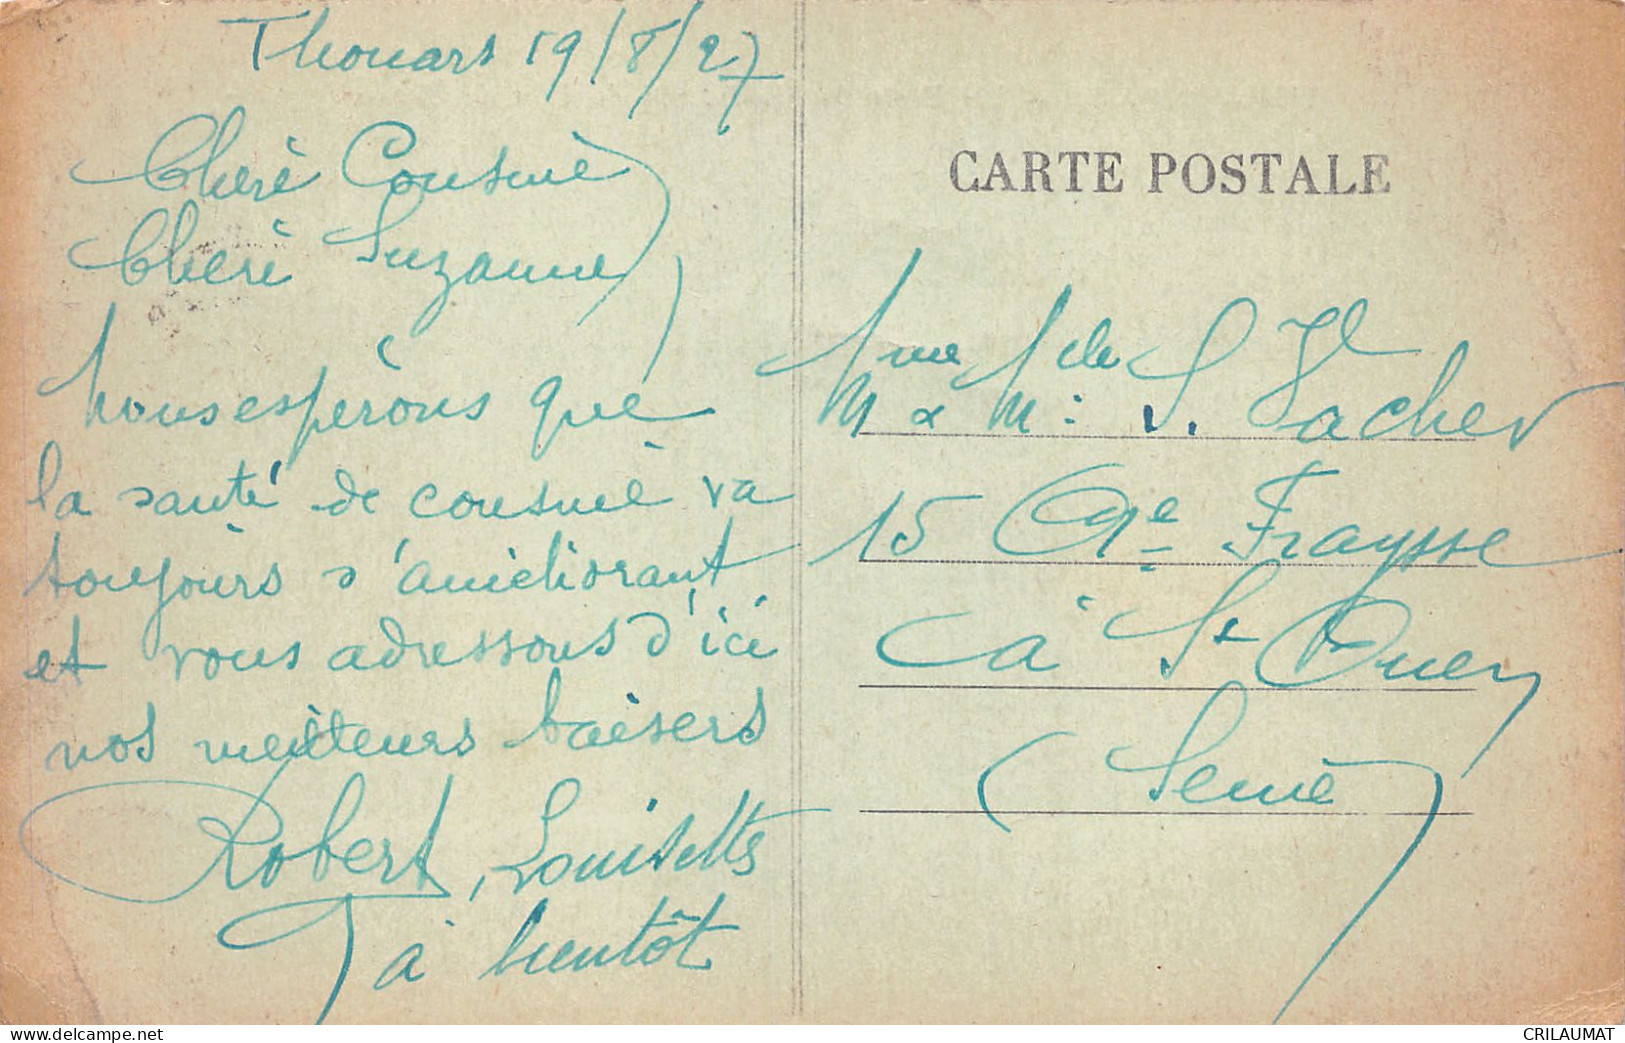 Thouars 19/8/27
Chère Cousine
Chère Suzanne
Nous espérons que
la santé de cousine va
toujours s'améliorant
et vous adressons d'ici
nos meilleurs baisers
Robert, Louisette
à bientôt
CARTE POSTALE
Mme Mlle S. Vacher
15 Fraysse
à St Ouen
(Seine)
CRILAUMAT